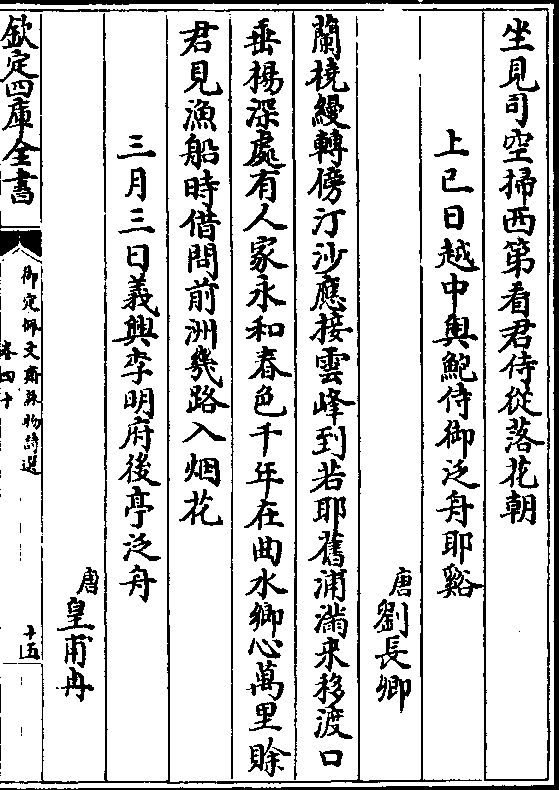 坐見司空掃西第看君侍從落花朝
上巳日越中與鮑侍御泛舟耶谿
唐劉長卿
蘭橈縵轉傍汀沙應接雲峰到若耶舊浦滿來移渡口
垂楊深處有人家永和春色千年在曲水鄉心萬里賖
君見漁船時借問前洲幾路入烟花
三月三日義興李明府後亭泛舟
唐皇甫冉
欽定四庫全書
御定佩文齋詠物詩選
卷四十
十五